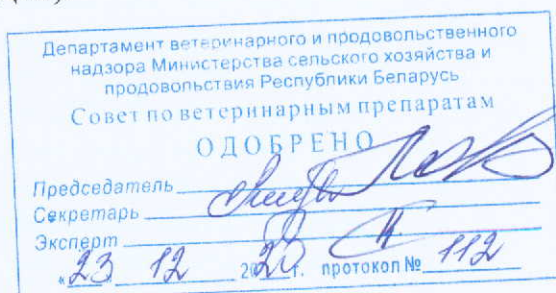 Департамент ветеринарного и продовольственного
надзора Министерства сельского хозяйства и
продовольствия Республики Беларусь
Совет по ветеринарным препаратам
ОДОБРЕНО
Председатель
Секретарь
Эксперт
«23 12 20 г. протокол № 112